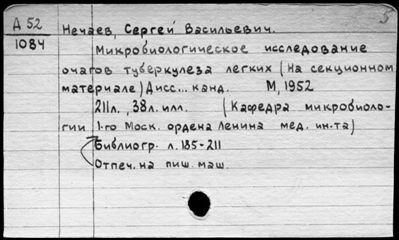 А 52
1084
Нечаев, Сергей Васильевич.
Микробиологическое исследование
очагов туберкулеза легких (На секционном
материале) Дисс... канд. М, 1952
211л., 38л. илл. (Кафедра микробиоло-
гии 1-го Моск. ордена Ленина мед. ин-та)
Библиогр. л. 185-211
Отпеч. на пиш. маш.